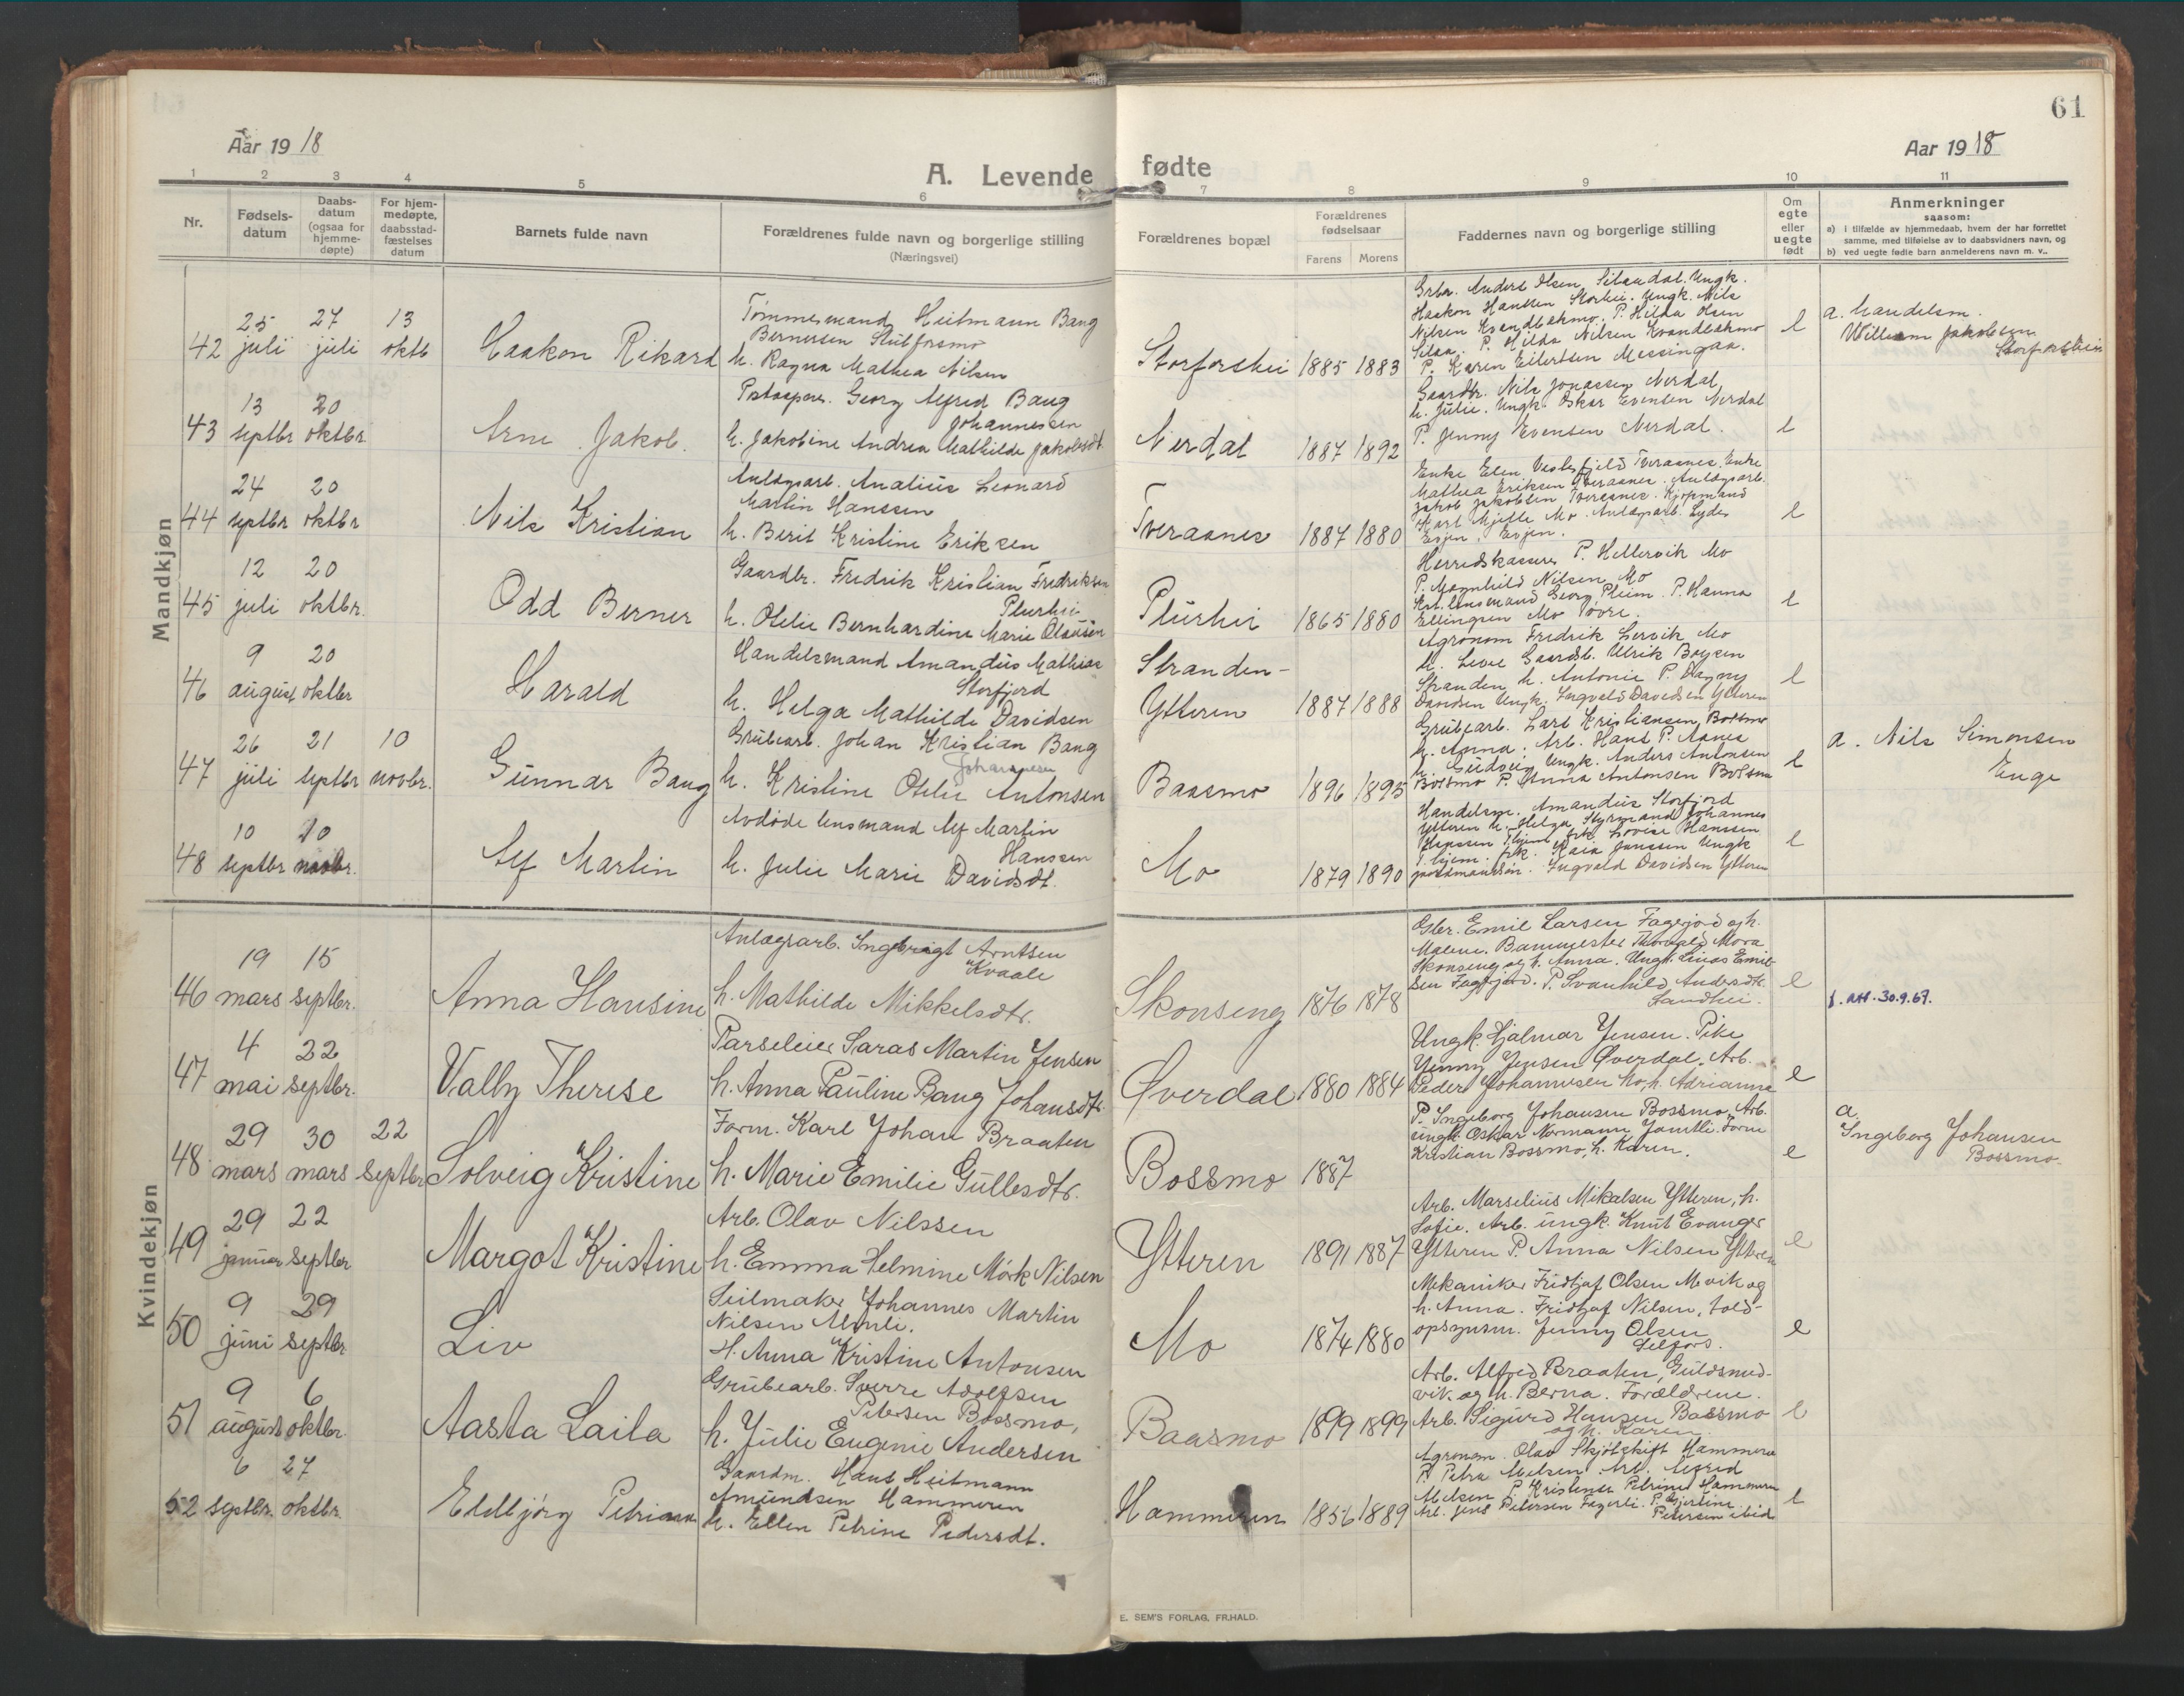 61
Aar 1918
Aar 1918
A. Levende fødte
1 2 3 4 5 6 7 8 9 10 11
Nr.
Fødsels-
datum
Daabs-
datum
(ogsaa for
hjemme-
døpte)
For hjem-
medøpte,
daabsstad-
fæstelses
datum
Barnets fulde navn
Forældrenes fulde navn og borgerlige stilling
(Næringsvei)
Forældrenes bopæl
Forældrenes
fødselsaar
Farens
Morens
Faddernes navn og borgerlige stilling
Om
egte
eller
uegte
født
Anmerkninger
saasom:
a) i tilfælde av hjemmedaab, hvem der har forrettet
samme, med tilføielse av to daabsvidners navn, og
b) ved uegte fødte barn anmelderens navn m. v..
Mandkjøn
42
25 juli
27 juli
13 oktb
Haakon Rikard
Tømmermand Heitmann Bang
Berntsen Stupforsmo
h. Ragna Mathea Nilsen
Storforshei
1885 1883
Grbr. Anders Olsen Silaudal. Ungk.
Haakon Hanssen Storhei. Ungk. Nils
Nilsen Kvandbækmo. P. Hilda Olsen
Silaa. P. Hilda Nilsen Kvandbækmo
P. Karen Eilertsen Messingaa.
e
a. handelsm.
William Jakobsen
Storforshei
43
13 septbr
20 oktbr.
Arne Jakob.
Postaapner. Georg Alfred Bang
Johannessen
h. Jakobine Andrea Mathilde Jakobsdt.
Nerdal
1887 1892
Gaardbr. Nils Jonassen Nerdal,
h. Julie. Ungk. Oskar Evensen Nerdal
P. Jenny Evensen Nerdal.
e
44
24 septbr
20 oktbr
Nils Kristian
Anlægsarb. Analius Leonard
Martin Hanssen
h. Berit Kristine Eriksen
Tveraanes
1887 1880
Enke Elen Vesterfjeld Tveraanes. Enke
Mathea Eriksen Tveraanes. Anlægsarb.
Jakob Jakobsen Tveraanes. Kjøpmand
Karl Mjelle Mo. Anlægsarb. Lyder
Evjen, Evjen.
e
45
12 juli
20 oktbr.
Odd Berner
Gaardbr. Fredrik Kristian Fredriksen
Plurhei
h. Otelie Bernhardine Marie Olausen
Plurhei
1865 1880
Herredskasserer P. Hellervik Mo
P. Magnhild Nilsen Mo
Krt. lensmand Georg Pleim. P. Hanna
Ellingsen Mo Søvre.
e
46
9 august
20 oktbr
Harald
Handelsmand Amandus Mathias
Storfjord
h. Helga Mathilde Davidsen
Stranden-
Ytteren
1887 1888
Agronom Fredrik Lervik Mo
h. Lovise Gaardb. Ulrik Boysen
Stranden h. Antonie P. Dagny
Davidsen Ungk. Ingvald Davidsen Ytteren
e
47
26 juli
21 septbr
10 novbr.
Gunnar Bang
Grubearb. Johan Kristian Bang
Johannesen
h. Kristine Otelie Antonsen
Baasmo
1896 1895
Grubearb. Lars Kristiansen, Bossmo
h. Anna. Arb. Hans P. Aanes
h. Gudveig Ungk. Anders Antonsen
Bossmo P. Anna Antonsen Bossmo
e
a. Nils Simonsen
Enge
48
10 septbr
10 novbr.
Alf Martin
Avdøde lensmand Alf Martin
Hanssen
h. Julie Marie Davidsdt.
Mo
1879 1890
Handelsm. Amandus Storfjord
Ytteren h. Helga Styrmand Johannes
Hanssen Thjem frk. Lovise Hanssen
T. hjem. frk. Kaia Jonssen Ungk
Ingvald Davidsen Ytteren
e
Kvindekjøn
46
19 mars
15 septbr.
Anna Hansine
Anlægsarb. Ingebrigt Arntsen
Kvaale
h. Mathilde Mikkelsdtr.
Skonseng
1876 1878
Gbr. Emil Larsen Fagerjord og h.
Malene. Banmester Thorvald Mora
Skonseng og h. Anna. Ungk. Linas Emil-
sen Fagerjord. P. Svanhild Andersdtr.
Sandhei.
e
f. att. 30.9.67.
47
4 mai
22 septbr.
Valby Therese
Parseleier Saras Martin Jensen
h. Anna Pauline Bang Johansdtr.
Øverdal
1880 1884
Ungk. Hjalmar Jensen. Pike
Jenny Jensen Øverdal. Arb.
Peder Johannesen Mo, h. Adrianna
e
48
29 mars
30 mars
22 septbr
Solveig Kristine
Form. Karl Johan Braaten
h. Marie Emilie Gullesdtr.
Bossmo
1887
P. Ingeborg Johansen Bossmo, Arb.
ungk. Oskar Normann Jamtli. Form
Kristian Bossmo, h. Karen.
e
a.
Ingeborg Johansen
Bossmo.
49
29 januar
22 septbr
Margot Kristine
Arb. Olav Nilssen
h. Emma Helmine Mörk Nilsen
Ytteren
1891 1887
Arb. Marselius Mikalsen Ytteren, h.
Sofie. Arb. ungk. Knut Evanger
Ytteren P. Anna Nilsen Ytteren
e
50
9 juni
29 septbr
Liv
Seilmaker Johannes Martin
Nilsen Almli.
H. Anna Kristine Antonsen
Mo
1874 1880
Mekaniker Fridtjof Olsen Mevik og
h. Anna. Fridtjof Nilsen, told-
opsynsm. Jenny Olsen
Selfors.
e
51
9 august
6 oktbr.
Aasta Laila
Grubearb. Sverre Adolfsen
Petersen Bossmo,
h. Julie Eugenie Andersen
Baasmo
1899 1899
Arb. Alfred Braaten, Guldsmed-
vik og h. Berna. Forældrene.
Arb. Sigurd Hansen Baasmo
og h. Karen.
e
52
6 septbr.
27 oktbr.
Eldbjørg Petrianna
Gaardm. Hans Heitmann
Amundsen Hammeren
h. Ellen Petrine Pedersdt.
Hammeren
1856 1889
Agronom. Olav Skjøtskift Hammeren
P. Petra Melsen. Arb. Alfred
Melsen P. Kristense Petrine Hammeren
Arb. Jens Petersen Fagerli. P. Hjertine
Petersen ibid
e
E. SEM'S FORLAG, FR.HALD.